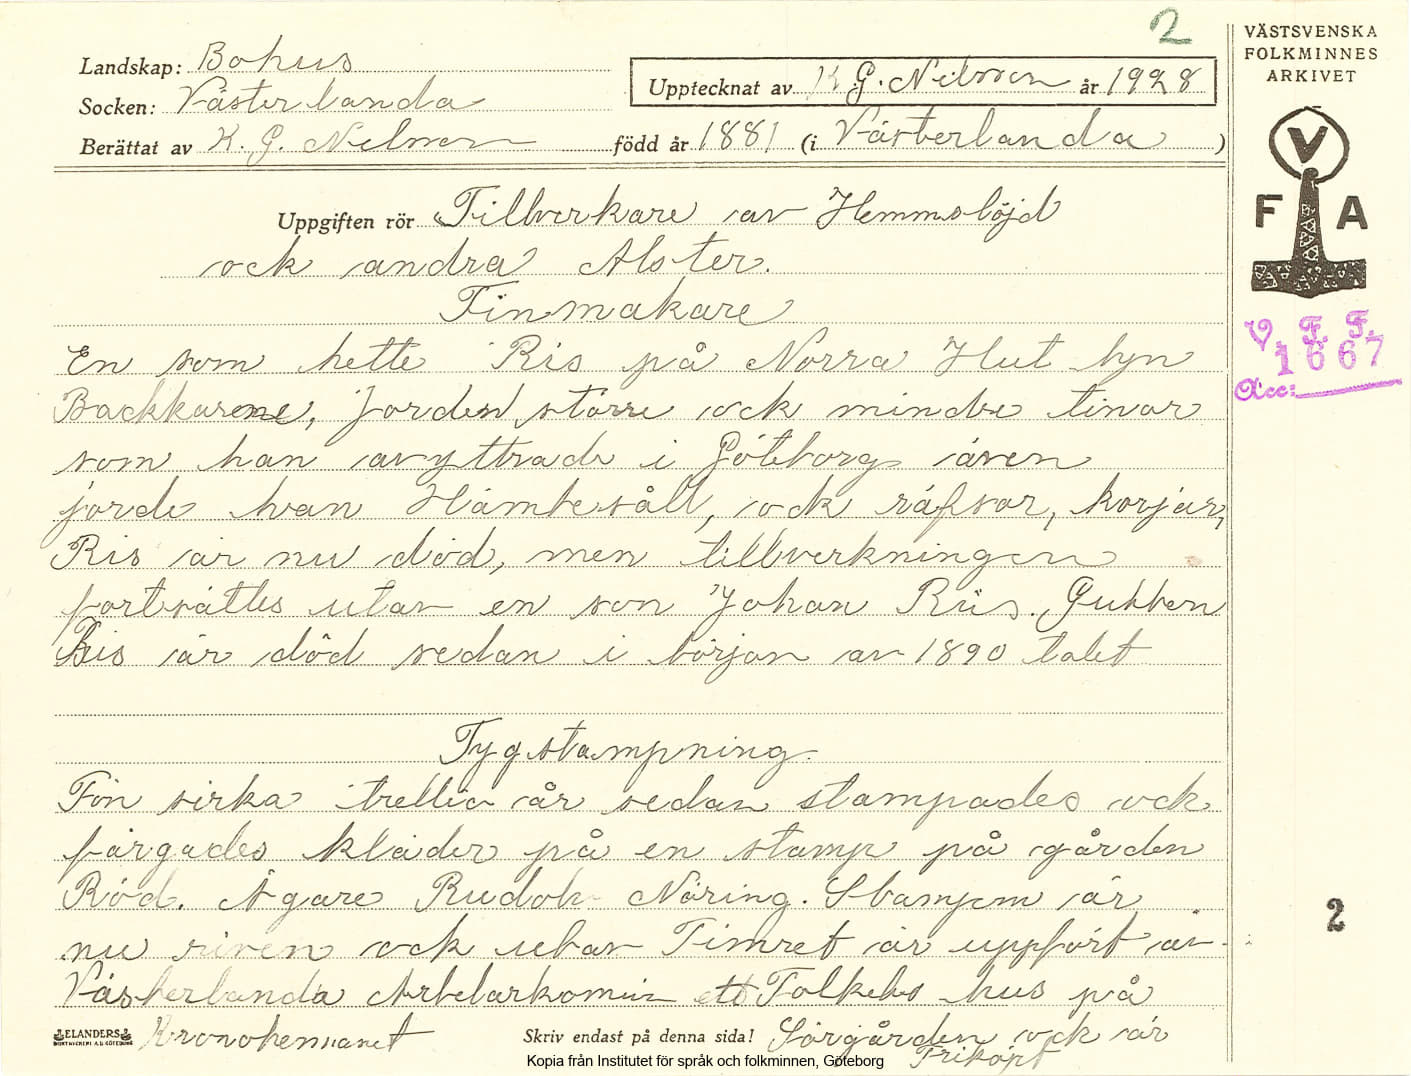 2
VÄSTSVENSKA
FOLKMINNES
ARKIVET
Landskap: Bohus
Upptecknat av K G. Nilsson år 1928
Socken: Västerlanda
Berättat av K. G. Nilsson född år 1881 (i Västerlanda )
V
F A
Uppgiften rör Tillverkare av Hemmslöjd
ock andra Alster.
Tinmakare
V. F. F.
1667
Acc:
En som hette Ris på Norra Hut
Backkarene, Jorden större ock mindre tinor
som han avyttrade i Göteborg även
jorde han Hämtesåll, ock räfsor, korjar,
Ris är nu död, men tillverkningen
fortsättes utav en son Johan Riis. Gubben
Ris är död sedan i början av 1890 talet
Tygstampning.
Fön sirka trettio år sedan stampades ock
färgades kläder på en stamp på gården
Röd. Ägare Rudolf Näring. Stampen är
2
nu riven ock utav Timret är uppfört av
Västerlanda Arbetarkomun ett Folkets hus på
ELANDERS
BOKTRYCKERI A.B. GÖTEBORG
Kronohemmanet
Skriv endast på denna sida!
Sörgården ock är
Friköpt
Kopia från Institutet för språk och folkminnen, Göteborg